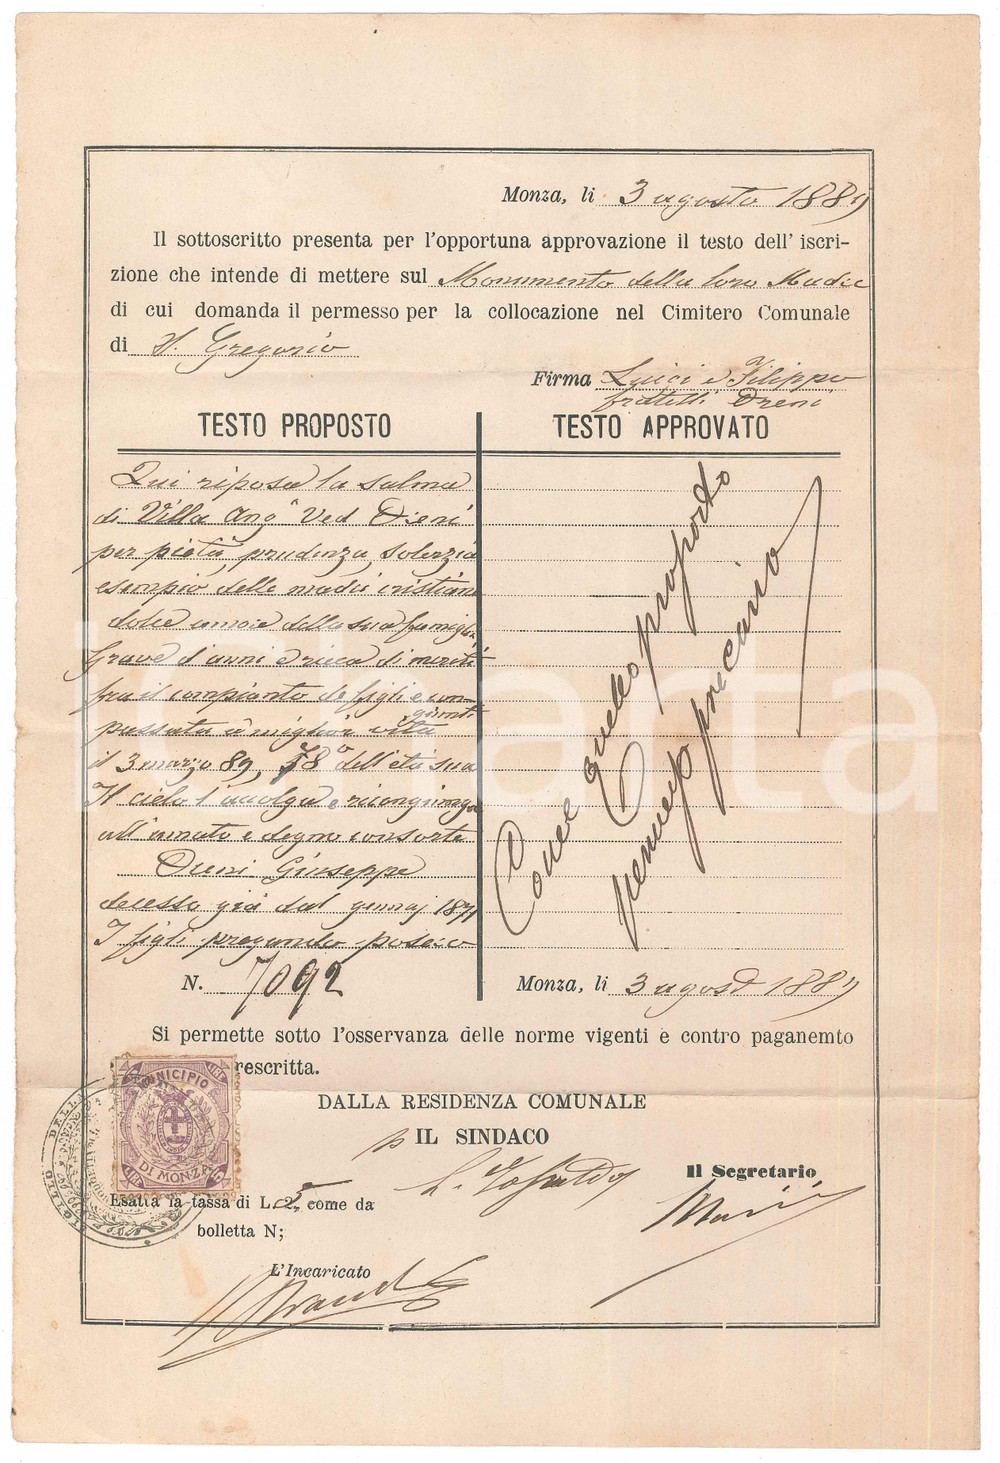 Monza, li 3 agosto 1889
Il sottoscritto presenta per l'opportuna approvazione il testo dell' iscri-
zione che intende di mettere sul Monumento della loro Madre
di cui domanda il permesso per la collocazione nel Cimitero Comunale
di S. Gregorio
Firma Luigi e Filippo
fratelli Oreni
TESTO PROPOSTO
Qui riposa la salma
di Villa Angª Ved Oreni
per pietà, prudenza, solerzia
esempio delle madri cristiane
dolce amore della sua famiglia
Grave d'anni e ricca di meriti
fra il compianto de figli e con-
giunti
passata a miglior vita
il 3 marzo 89, 78º dell'età sua
Il cielo l'accolga e ricongiunga
all'amato e degno consorte
Oreni Giuseppe
decesso già dal gennaj 1871
I figli pregando posero
N. 7092
TESTO APPROVATO
Come quello proposto
permesso precario
Monza, li 3 agosto 1889
Si permette sotto l'osservanza delle norme vigenti e contro paganemto
rescritta.
DALLA RESIDENZA COMUNALE
p IL SINDACO
Il Segretario
MUNICIPIO
DI MONZA
Esatta la tassa di L. 5 come da
bolletta N;
L'Incaricato
bparta